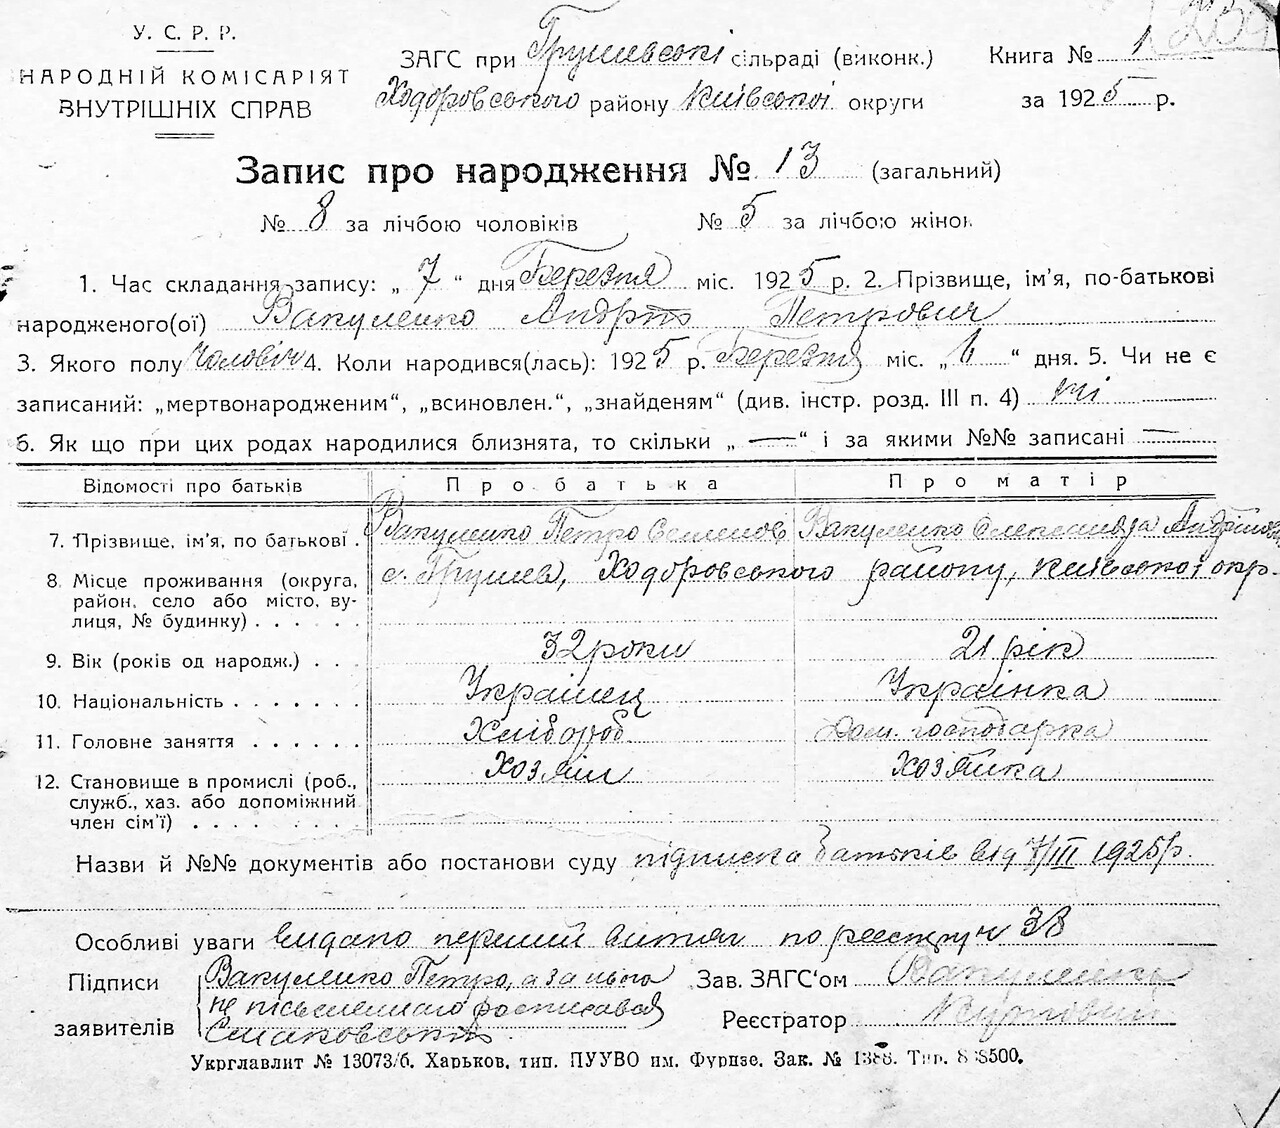 239
У. С. Р. Р.
НАРОДНІЙ КОМІСАРІЯТ
ВНУТРІШНІХ СПРАВ
ЗАГС при Грушевські сільраді (виконк.)
Ходоровського району Київської округи
Книга № 1
за 1925 р.
Запис про народження № 13 (загальний)
№ 8 за лічбою чоловіків № 5 за лічбою жінок
1. Час складання запису: „ 7 “ дня Березня міс. 1925 р. 2. Прізвище, ім’я, по-батькові
народженого(ої) Вакуленко Андрій Петрович
3. Якого полу чоловіч 4. Коли народився(лась): 1925 р. Березня міс. „ 6 “ дня. 5. Чи не є
записаний: „мертвонародженим“, „всиновлен.“, „знайденям“ (див. інстр. розд. III п. 4) ні
6. Як що при цих родах народилися близнята, то скільки „ — “ і за якими №№ записані —
Відомості про батьків Про батька Про матір
7. Прізвище, ім’я, по батькові . Вакуленко Петро Семенов Вакуленко Олександра Андріївна
8. Місце проживання (округа, с. Грушев, Ходоровського району, Київської окр.
район, село або місто, ву-
лиця, № будинку) . . . . . .
9. Вік (років од народж.) . . . 32 роки 21 рік
10. Національність . . . . . . . Українец Українка
11. Головне заняття . . . . . . Хлібороб Дом. господарка
12. Становище в промислі (роб., Хозяін Хозяйка
служб., хаз. або допоміжний
член сім’ї) . . . . . . . .
Назви й №№ документів або постанови суду підписка батьків від 7/III 1925 р.
Особливі уваги видано перший витяг по реестру № 38
Підписи
заявителів
Вакуленко Петро, а за нього
не письменного росписався
Смаковський
Зав. ЗАГС‘ом Вакуленко
Реєстратор
Укрглавлит № 13073/б. Харьков, тип. ПУУВО им. Фрунзе. Зак. № 1388. Тир. 8 3500.